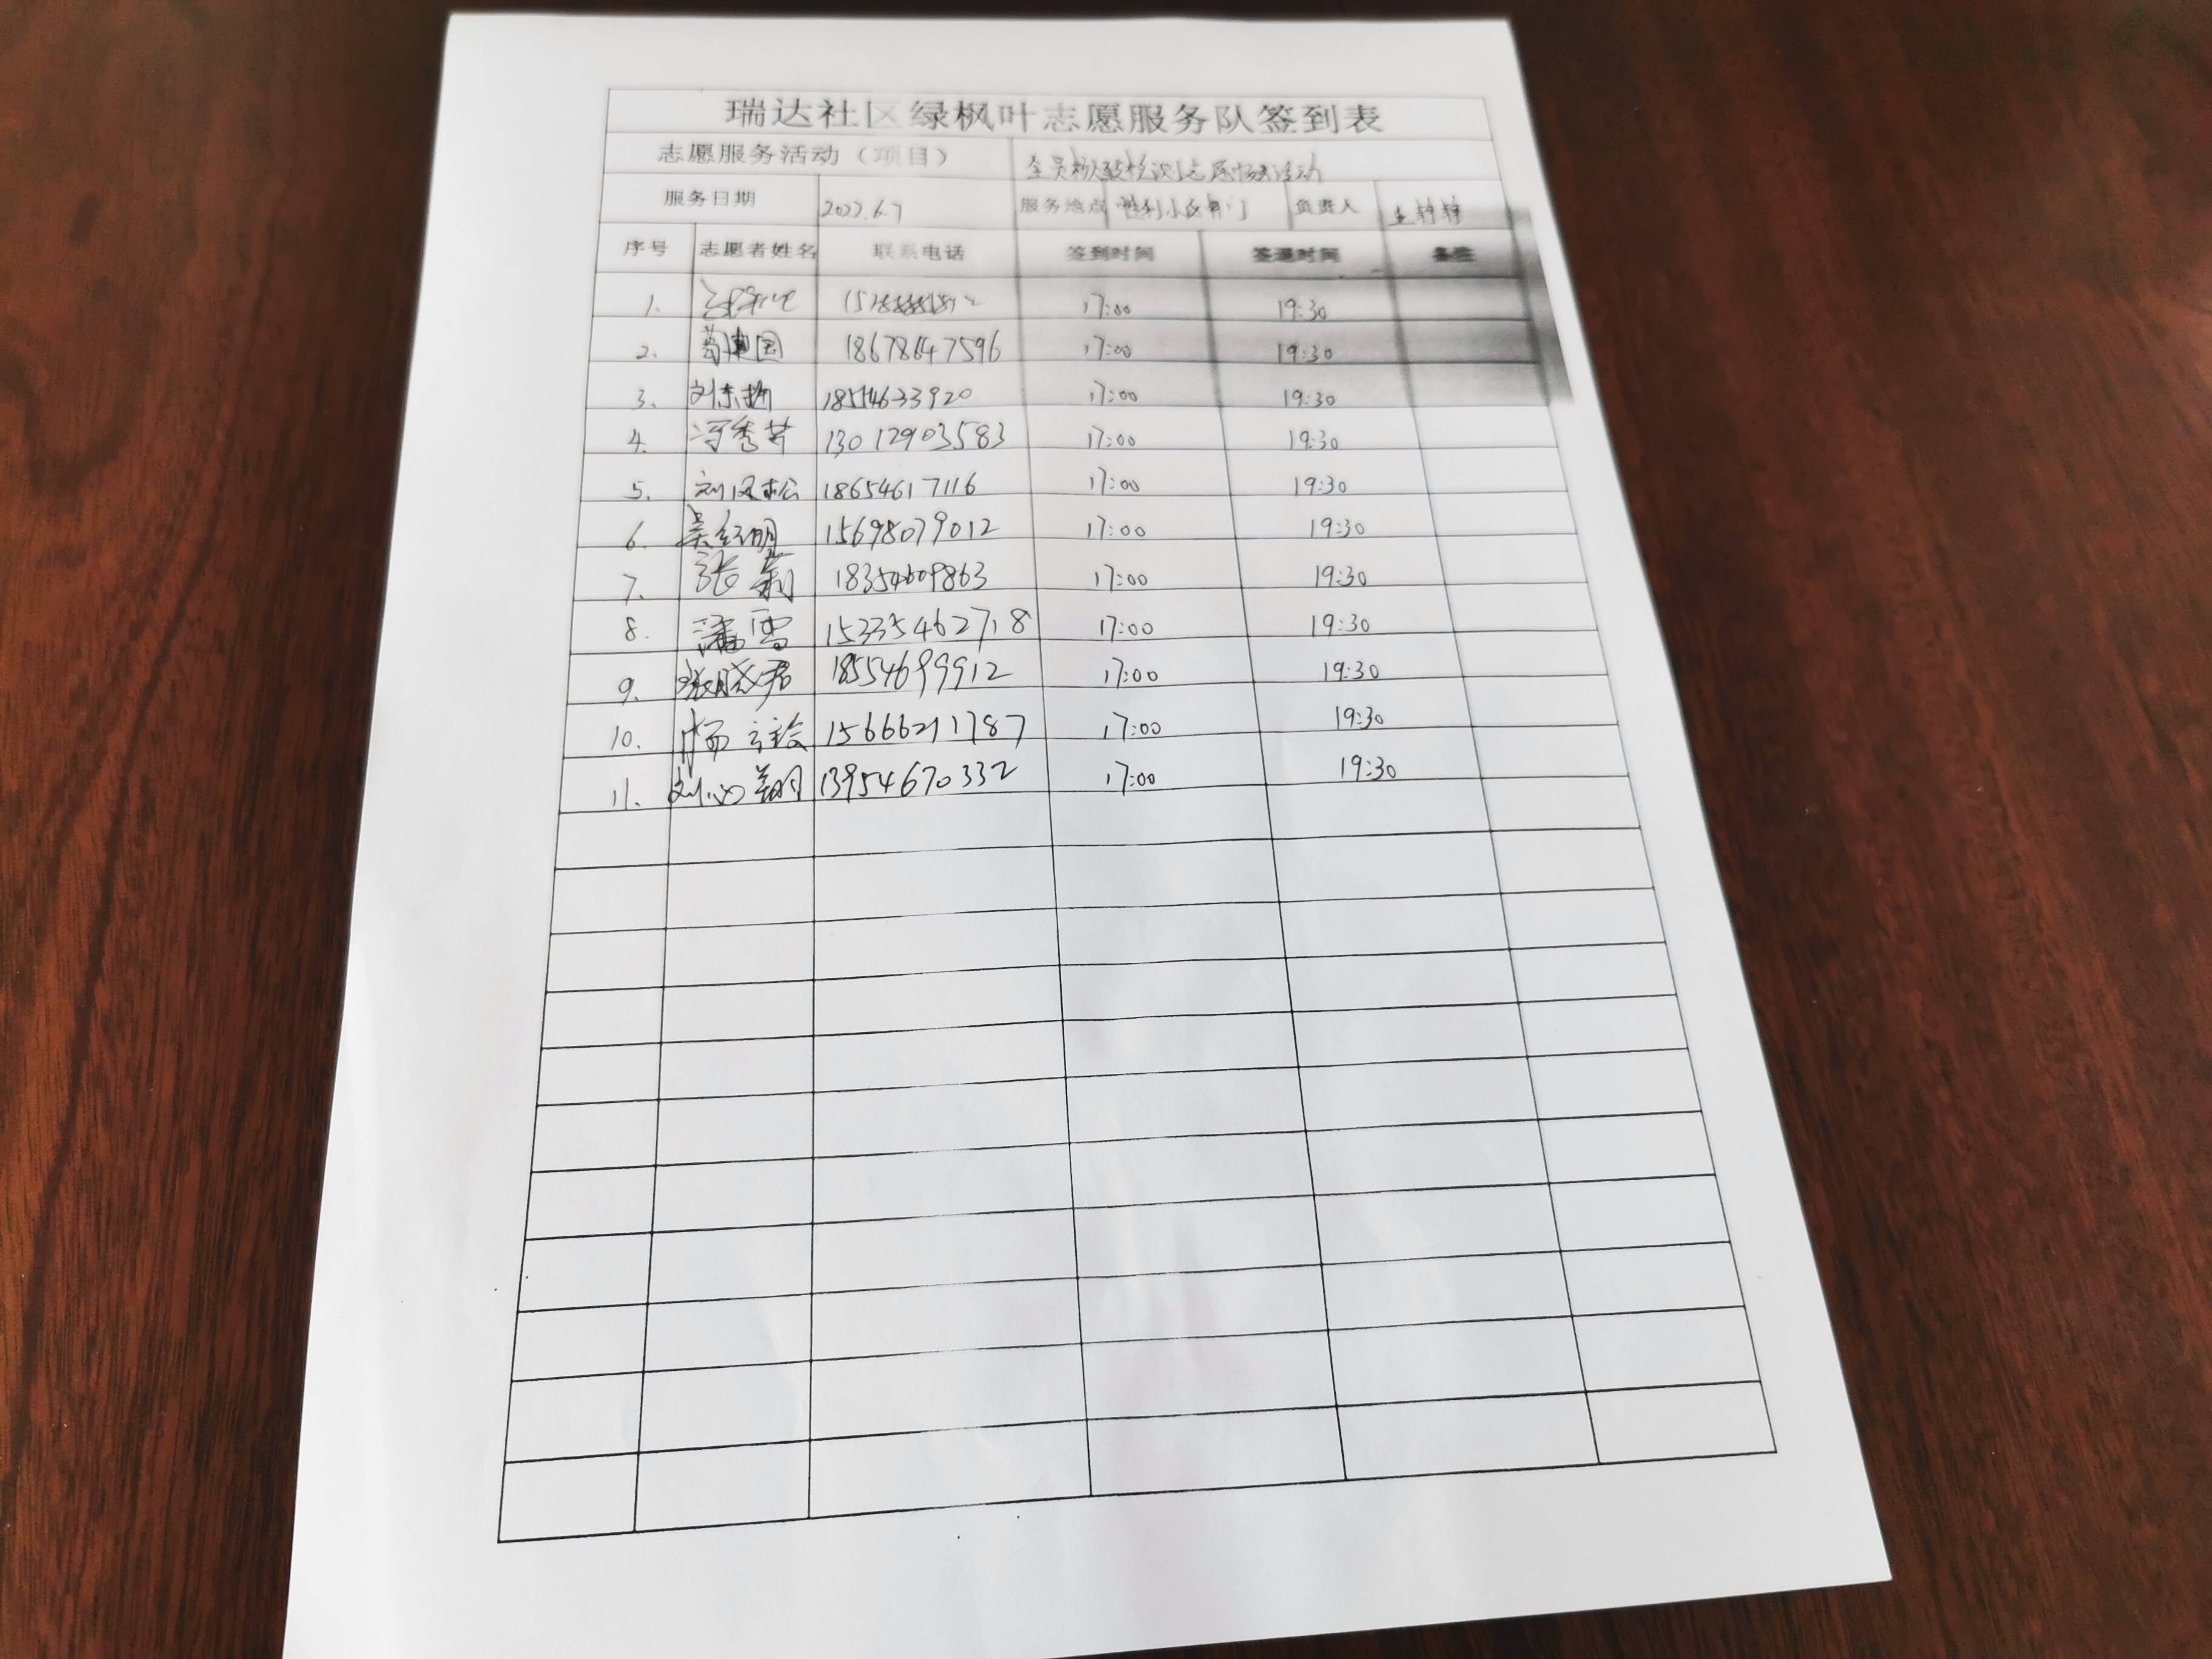 瑞达社区绿枫叶志愿服务队签到表
志愿服务活动（项目） 全员核酸检测志愿服务活动
服务日期 2022.6.7 服务地点 胜利小区 负责人 王婷婷
序号 志愿者姓名 联系电话 签到时间 签退时间 备注
1. 17:00 19:30
2. 国 18678647596 17:00 19:30
3. 刘东 18554633920 17:00 19:30
4. 冯秀芹 13012903583 17:00 19:30
5. 刘风松 18654617116 17:00 19:30
6. 吴红明 15698079012 17:00 19:30
7. 张莉 18354609863 17:00 19:30
8. 潘雪 15335462718 17:00 19:30
9. 张晓君 18554699912 17:00 19:30
10. 杨 15666211787 17:00 19:30
11. 刘 13954670332 17:00 19:30